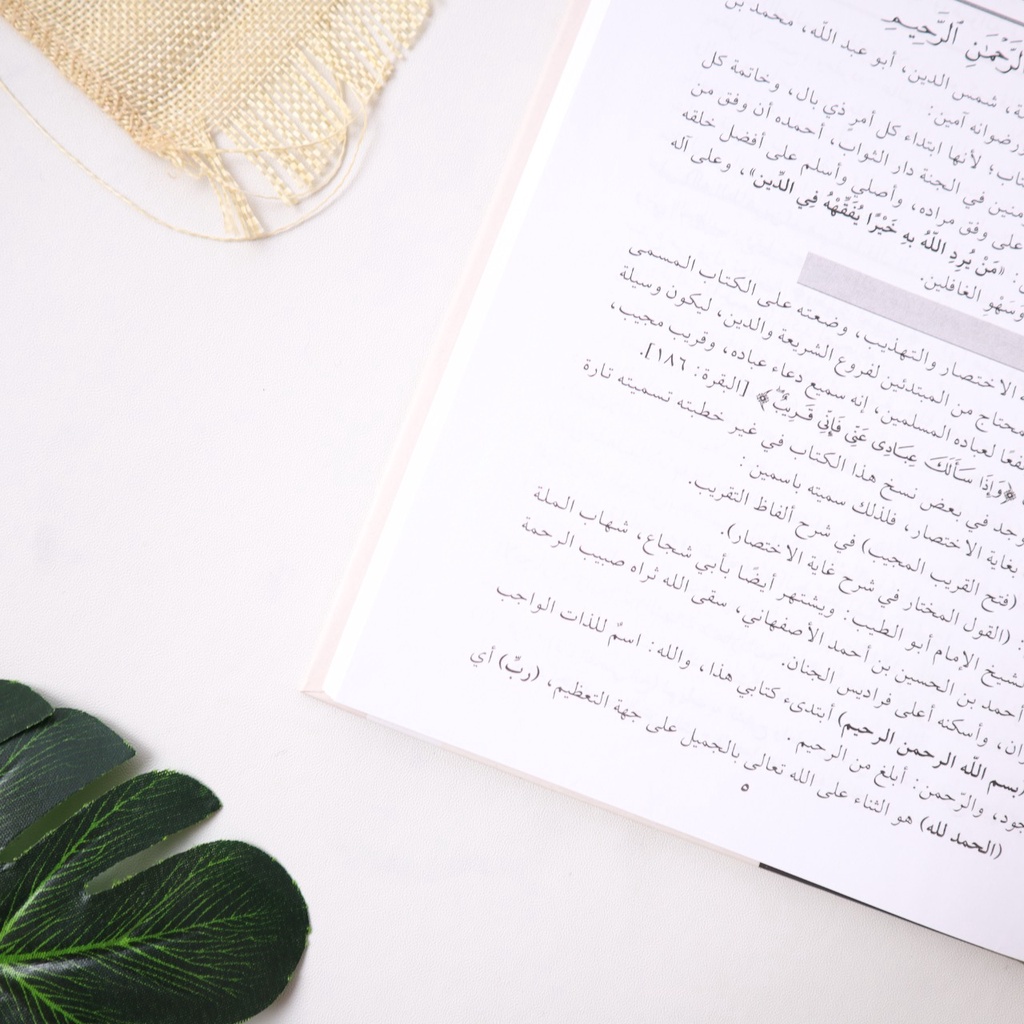 الرَّحْمَٰنِ ٱلرَّحِيمِ
شمس الدين، أبو عبد الله، محمد بن
ورضوانه آمين:
لأنها ابتداء كل أمرٍ ذي بال، وخاتمة كل
في الجنة دار الثواب، أحمده أن وفق من
على وفق مراده، وأصلي وأسلم على أفضل خلقه
«مَنْ يُرِدِ اللَّهُ بِهِ خَيْرًا يُفَقِّهْهُ فِي الدِّينِ»، وعلى آله
وَسَهْوِ الغافلين.
الاختصار والتهذيب، وضعته على الكتاب المسمى
محتاج من المبتدئين لفروع الشريعة والدين، ليكون وسيلة
لعباده المسلمين، إنه سميع دعاء عباده، وقريب مجيب،
﴿وَإِذَا سَأَلَكَ عِبَادِى عَنِّى فَإِنِّى قَرِيبٌ﴾ [البقرة: ١٨٦].
في بعض نسخ هذا الكتاب في غير خطبته تسميته تارة
بغاية الاختصار، فلذلك سميته باسمين:
(فتح القريب المجيب) في شرح ألفاظ التقريب.
(القول المختار في شرح غاية الاختصار).
الشيخ الإمام أبو الطيب: ويشتهر أيضًا بأبي شجاع، شهاب الملة
أحمد بن الحسين بن أحمد الأصفهاني، سقى الله ثراه صبيب الرحمة
وأسكنه أعلى فراديس الجنان.
(بسم الله الرحمن الرحيم) أبتدىء كتابي هذا، والله: اسمٌ للذات الواجب
والرّحمن: أبلغ من الرحيم.
(الحمد لله) هو الثناء على الله تعالى بالجميل على جهة التعظيم، (ربِّ) أي
٥